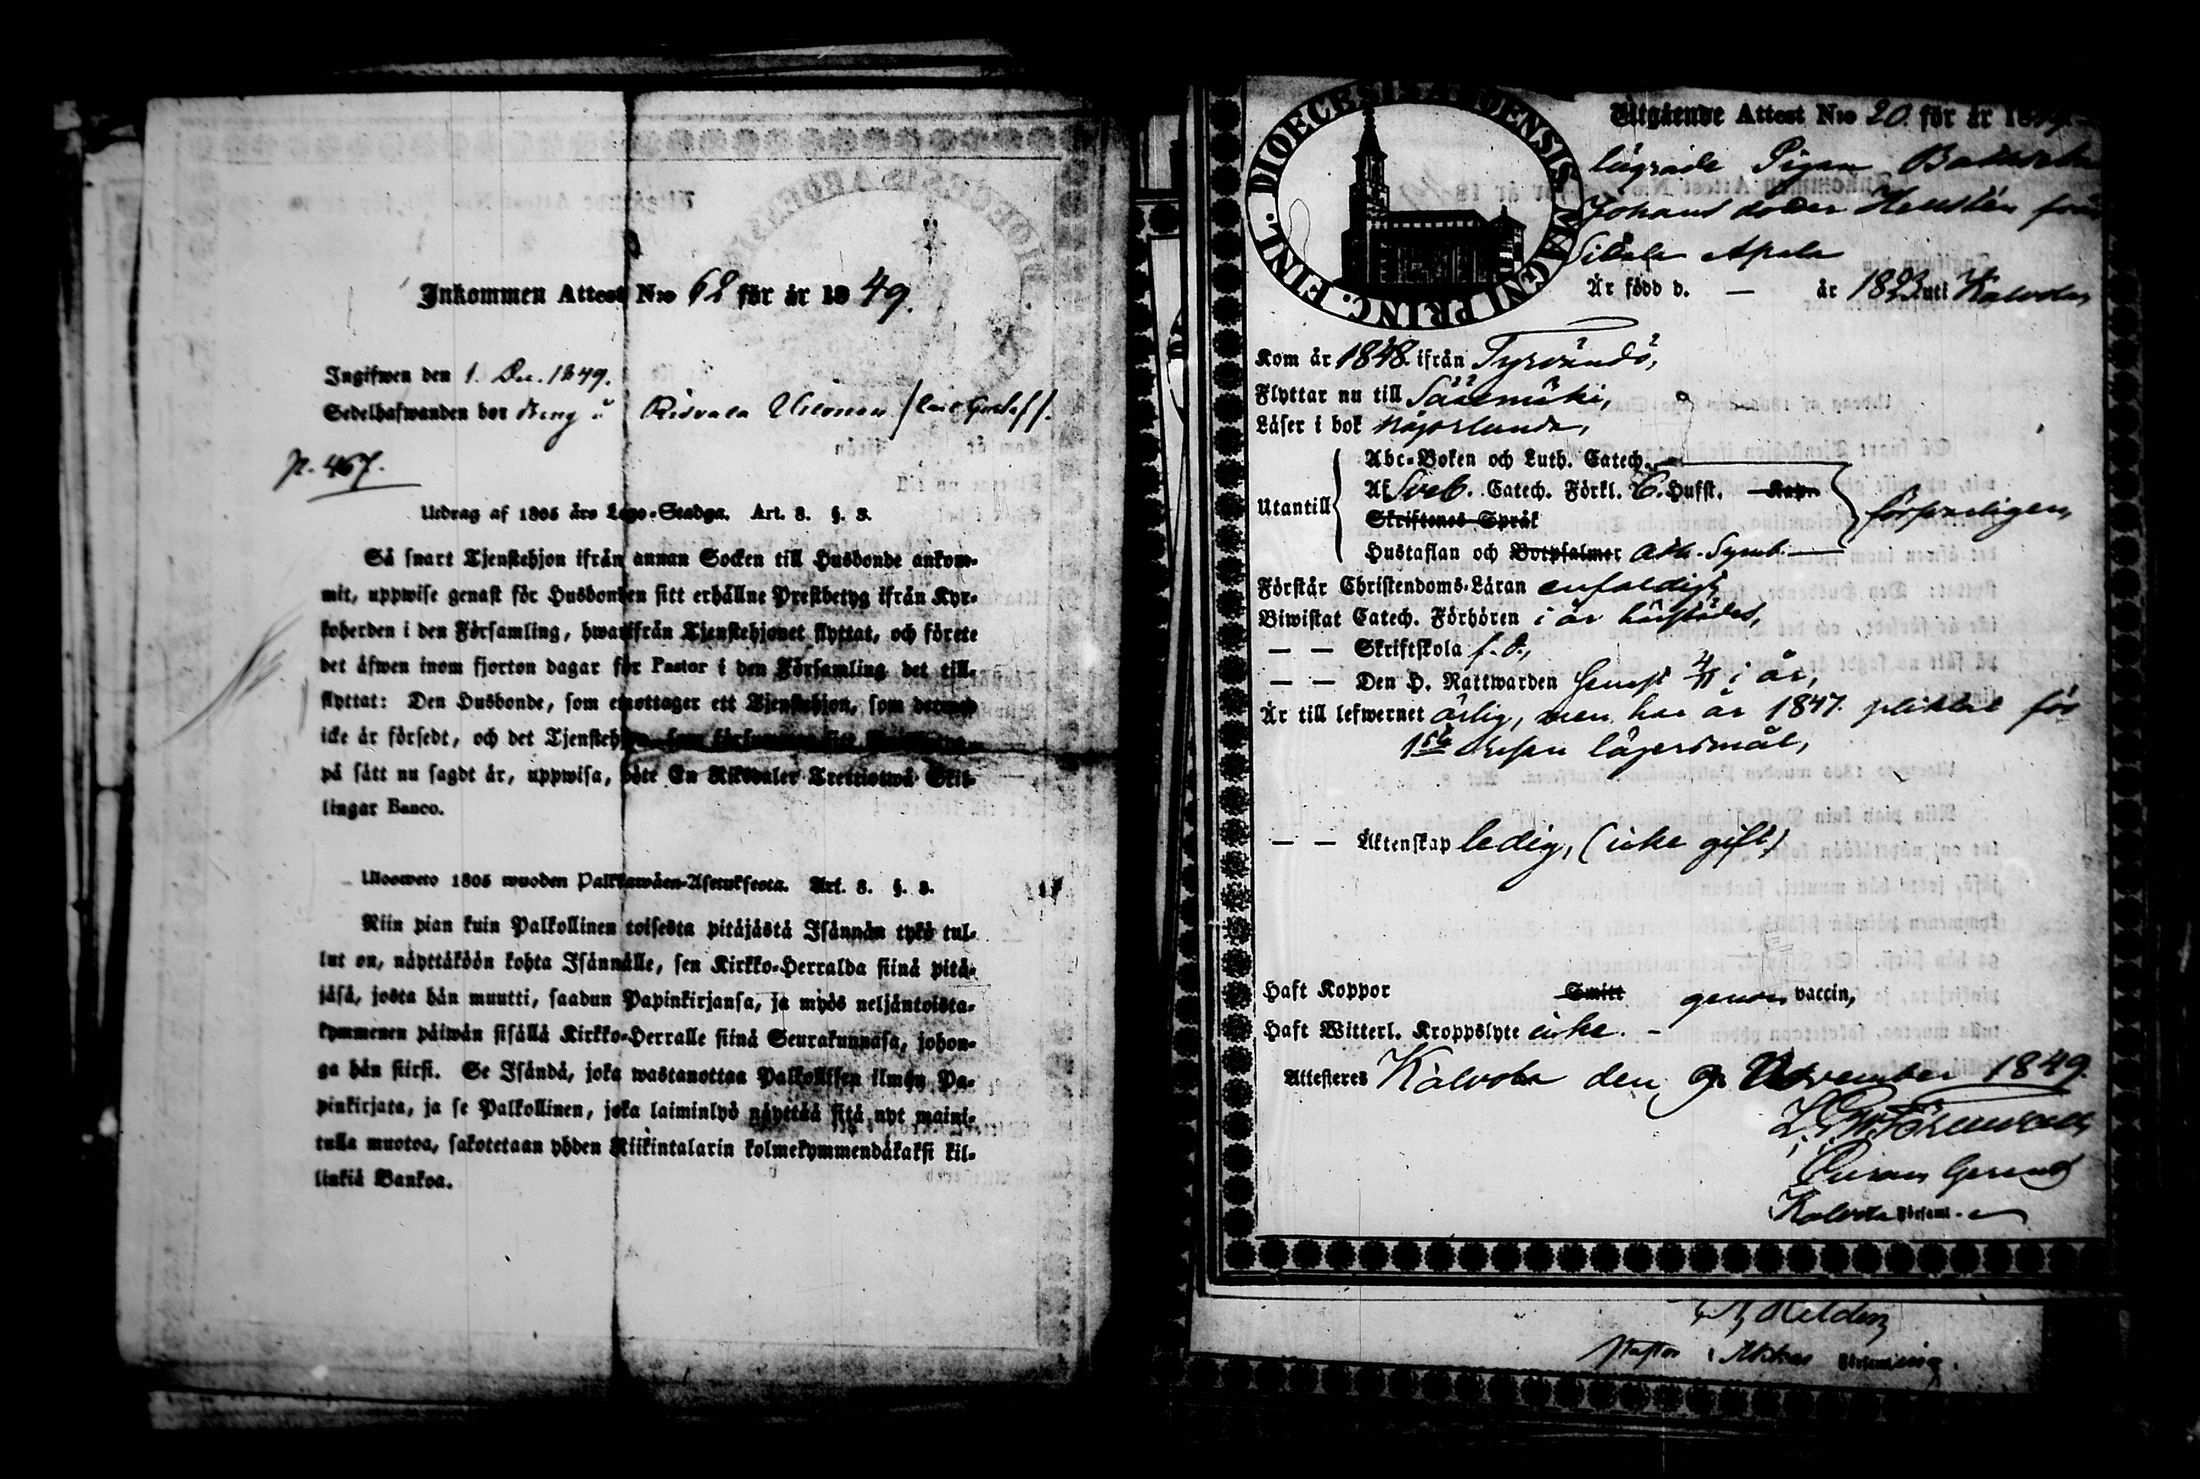 Inkommen Attest N:o 62 för år 1849.
Ingifwen den 1. Dec. 1849.
Sedelhafwanden bor
p. 467.
Utdrag af 1805 års Lego-Stadga. Art. 3. §. 3.
Så snart Tjenstehjon ifrån annan Socken till Husbonde ankom-
mit, uppwise genast för Husbonden sitt erhållne Prestbetyg ifrån Kyr-
koherden i den Församling, hwarifrån Tjenstehjonet flyttat, och förete
det äfwen inom fjorton dagar för Pastor i den Församling det till-
flyttat: Den Husbonde, som emottager ett Tjenstehjon, som dermed
icke är försedt, och det Tjenstehjon, som
på sätt nu sagdt är, uppwisa, böte En Riksdaler Trettiotwå Skil-
lingar Banco.
Ulosweto 1805 wuoden Palkkawäen-Asetuksesta. Art. 3. §. 3.
Niin pian kuin Palkollinen toisesta pitäjästä Isännän tykö tul-
lut on, näyttäköön kohta Isännälle, sen Kirkko-Herralda siinä pitä-
jäsä, josta hän muutti, saadun Papinkirjansa, ja myös neljäntoista-
kymmenen päiwän sisällä Kirkko-Herralle siinä Seurakunnasa, johon-
ga hän siirsi. Se Isändä, joka wastanottaa Palkollisen ilman Pa-
pinkirjata, ja se Palkollinen, joka laiminlyö näyttää sitä nyt maini-
tulla muotoa, sakotetaan yhden Riikintalarin kolmekymmendäkaksi kil-
linkiä Bankoa.
DIOECESIS ABOENSIS MAGNI PRINC. FINL.
Utgående Attest N:o 20. för år 18
lägrade Pigan
Johans doter från
Är född d. — år 1823 uti Kalvola
Kom år 1848. ifrån Tyrvändö,
Flyttar nu till Sääxmäki,
Läser i bok någorlunda,
Utantill
Abc-Boken och Luth. Catech.
Af Sveb. Catech. Förkl. 6. Hufst. Kapr.
Skriftenes Språk
Hustaflan och Botpsalmer Ath. Symb.
försvarligen,
Förstår Christendoms-Läran enfaldigt,
Biwistat Catech. Förhören i år härstädes,
— — Skriftskola f. d.,
— — Den H. Nattwarden senast 4/11 i år,
Är till lefwernet ärlig, men har år 1847. pliktat för
1sta resan lägersmål,
— — Äktenskap ledig, (icke gift)
Haft Koppor Smitt genom vaccin,
Haft Witterl. Kroppslyte icke. —
Attesteres Kalvola den 9 November 1849.
Kalvola Församl.
Pastor i